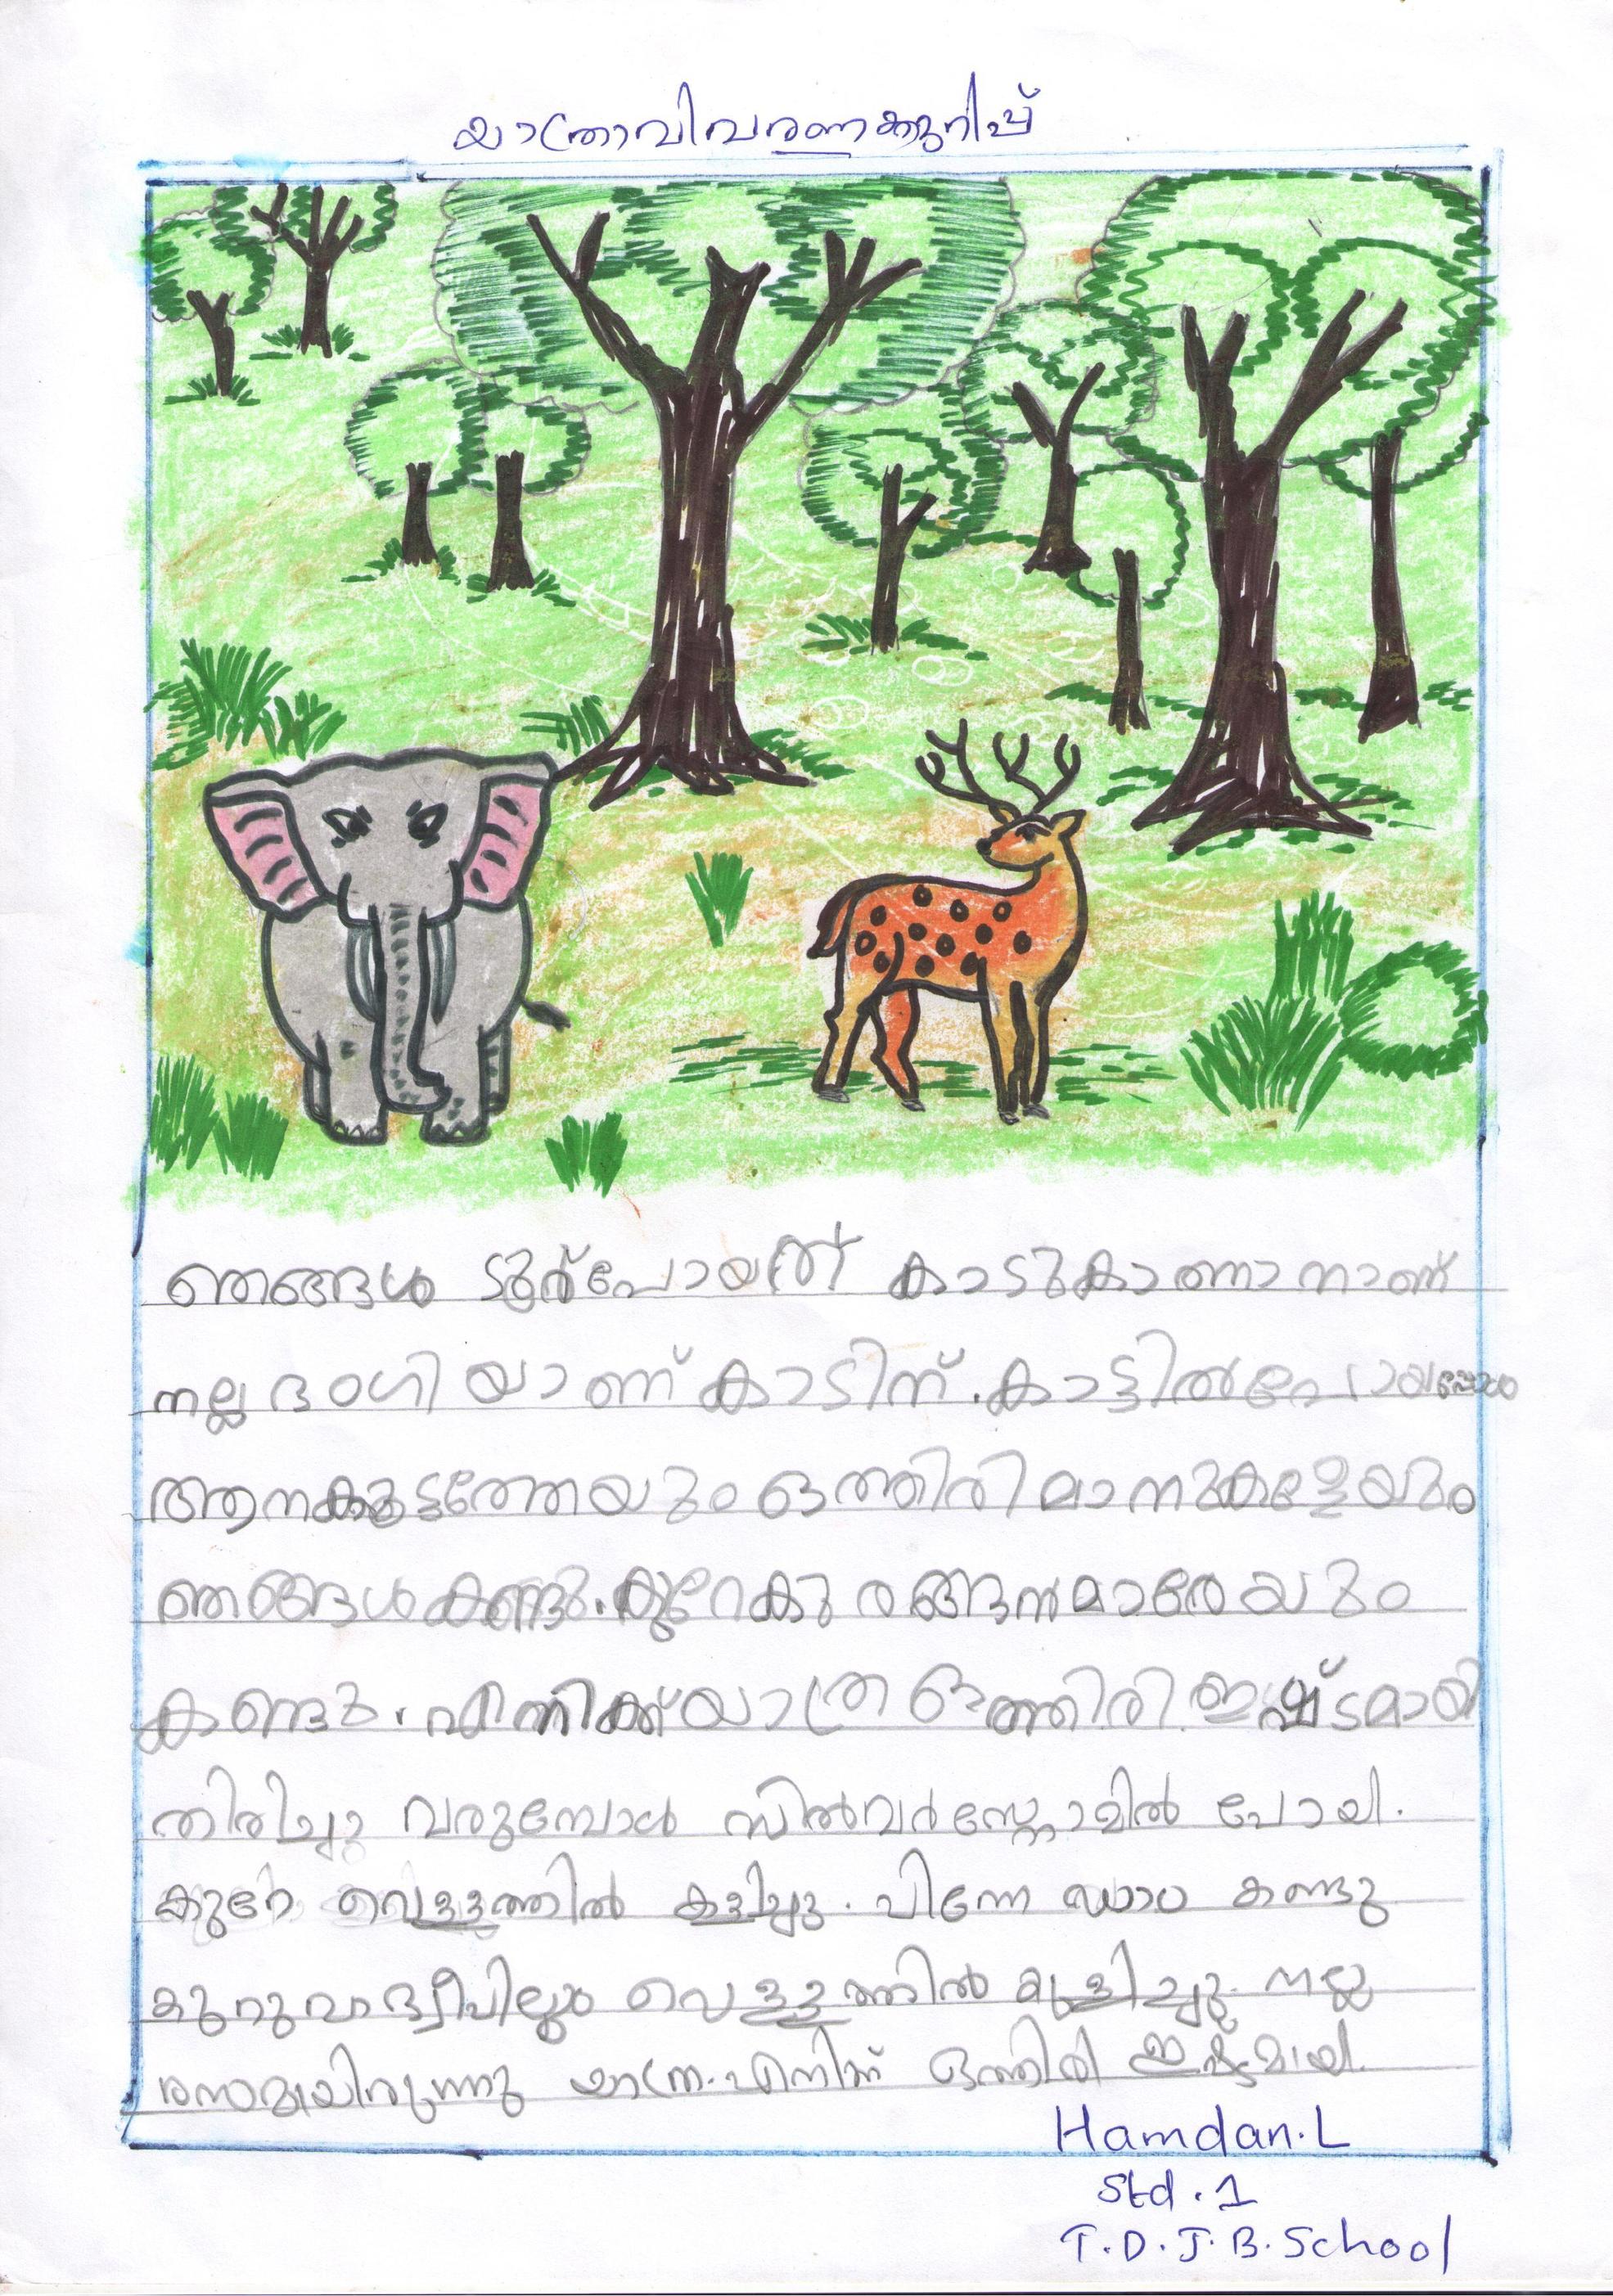 യാത്രാവിവരണക്കുറിപ്പ്
ഞങ്ങൾ ടൂർപോയത് കാടുകാണാനാണ്
നല്ല ഭംഗിയാണ് കാടിന്. കാട്ടിൽപോയപ്പോൾ
ആനക്കൂട്ടത്തേയും ഒത്തിരി മാനുകളേയും
ഞങ്ങൾ കണ്ടു. കുറേ കുരങ്ങൻമാരേയും
കണ്ടു. എനിക്ക് യാത്ര ഒത്തിരി ഇഷ്ടമായി
തിരിച്ചു വരുമ്പോൾ സിൽവർസ്റ്റോമിൽ പോയി.
കുറേ വെള്ളത്തിൽ കളിച്ചു. പിന്നേ ഡാം കണ്ടു
കുറുവാദ്വീപിലും വെള്ളത്തിൽ കുളിച്ചു. നല്ല
രസമായിരുന്നു യാത്ര. എനിക്ക് ഒത്തിരി ഇഷ്ടമായി.
Hamdan. L
Std. 1
T. D. J. B. School